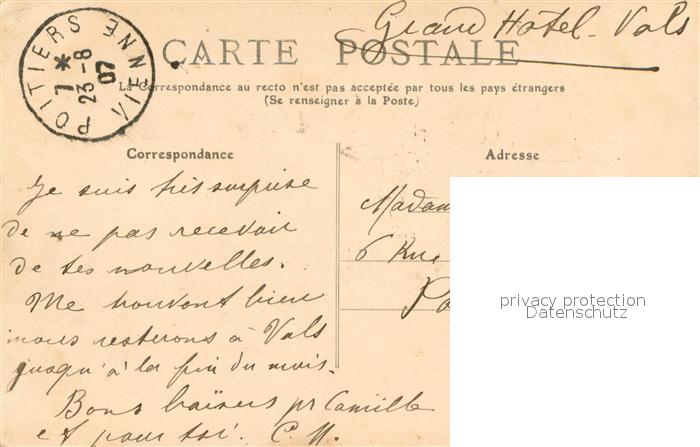 Grand Hôtel - Vals
CARTE POSTALE
La Correspondance au recto n'est pas acceptée par tous les pays étrangers
(Se renseigner à la Poste)
POITIERS VIENNE
7 *
23 - 8
07
Correspondance
Je suis très surprise
de ne pas recevoir
de tes nouvelles.
Me trouvant bien
nous resterons à Vals
jusqu'à la fin du mois.
Bons baisers pr Camille
et pour toi. C. M.
Adresse
Madam
6 Rue
Po
privacy protection
Datenschutz